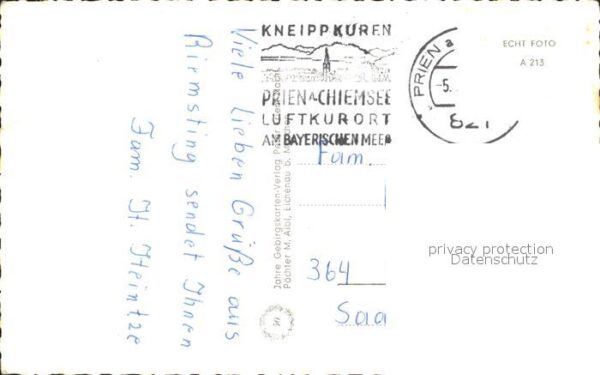 Viele lieben Grüße aus
Rimsting sendet Ihnen
Fam. H. Heintze
KNEIPPKUREN
PRIEN A. CHIEMSEE
LUFTKURORT
AM BAYERISCHEN MEER
PRIEN a
-5.
821
ECHT FOTO
A 213
Fam.
364
Saa
Jahre Gebirgskarten-Verlag
Pächter M. Aibl, Eichenau b. München
privacy protection
Datenschutz